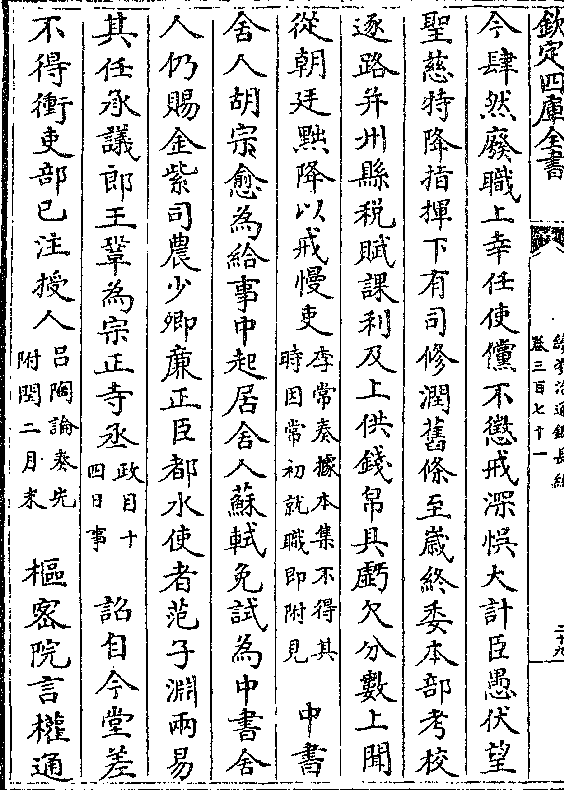 欽定四庫全書
續資治通鑑長編
卷三百七十一
今肆然廢職上幸任使儻不懲戒深悞大計臣愚伏望
聖慈特降指揮下有司修潤舊條至歲終委本部考校
逐路并州縣稅賦課利及上供錢帛具虧欠分數上聞
從朝廷黜降以戒慢吏李常奏據本集不得其時因常初就職即附見中書
舍人胡宗愈為給事中起居舍人蘇軾免試為中書舍
人仍賜金紫司農少卿廉正臣都水使者范子淵兩易
其任承議郎王鞏為宗正寺丞政目十四日事詔自今堂差
不得衝吏部已注授人呂陶論奏先附閏二月末樞密院言權通